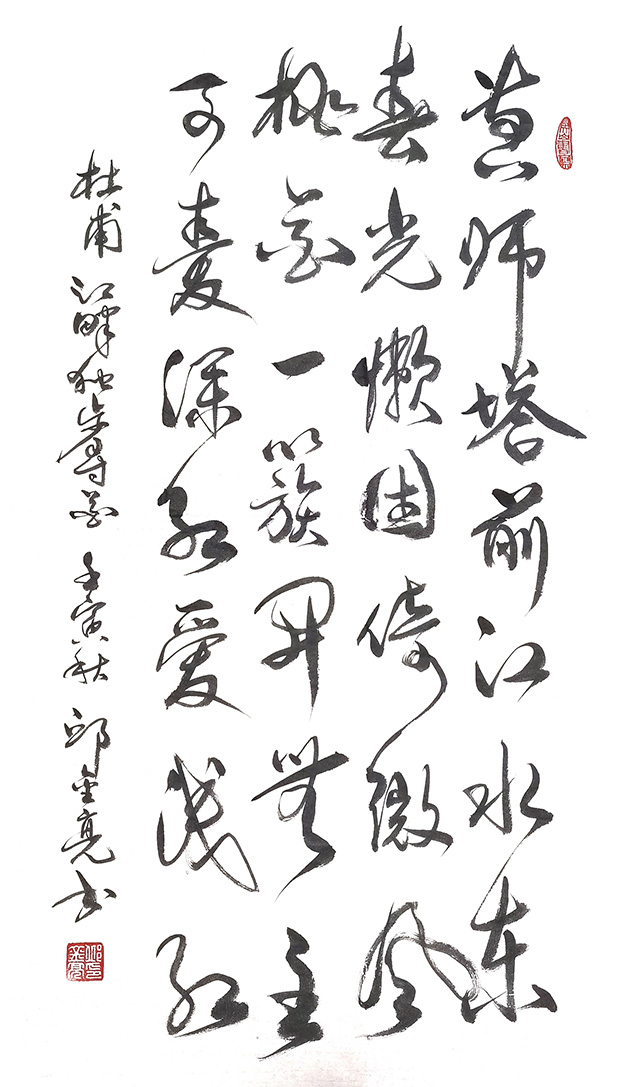 黄师塔前江水东
春光懒困倚微风
桃花一簇开無主
可爱深红爱浅红
杜甫 江畔独步寻花 壬寅秋 邱金亮书